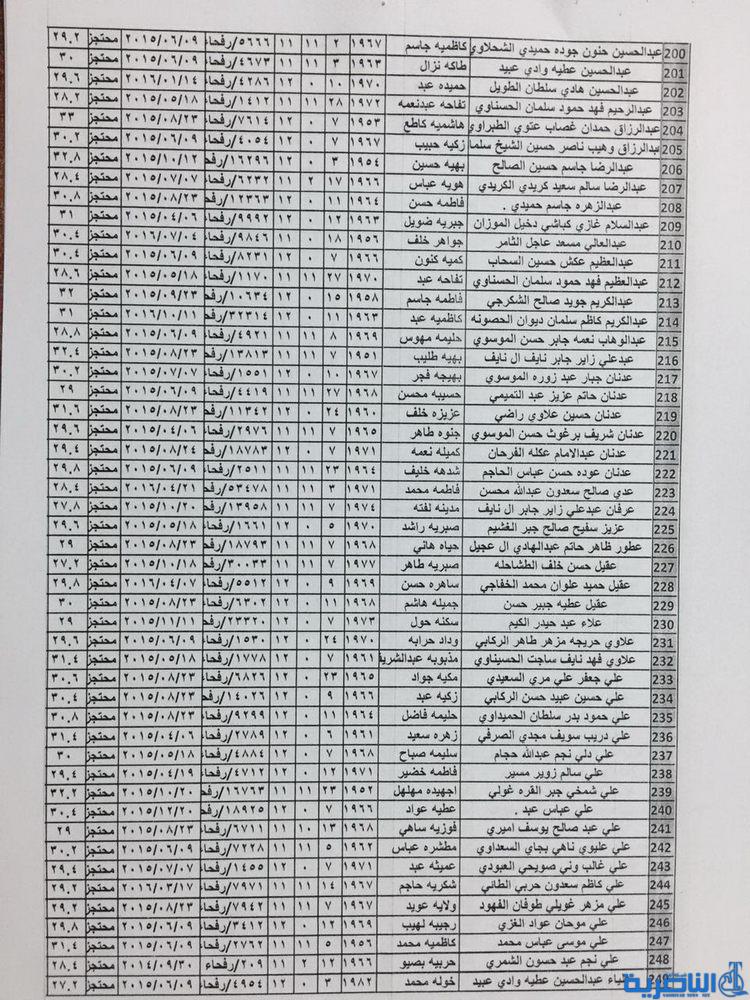 200 عبدالحسين حنون جوده حميدي الشحلاوي كاظميه جاسم ١٩٦٧ ٢ ١١ ١١ ٥٦٦٦/رفحاء ٢٠١٥/٠٦/٠٩ محتجز ٢٩.٢
201 عبدالحسين عطيه وادي عبيد طاكه نزال ١٩٦٣ ٣ ١١ ١١ ٤٦٧٣/رفحاء ٢٠١٥/٠٦/٠٩ محتجز ٣٠
202 عبدالحسين هادي سلطان الطويل حميده عبد ١٩٧٠ ١٠ ٠ ١٢ ٤٢٨٦/رفحاء ٢٠١٦/٠١/١٤ محتجز ٢٩.٦
203 عبدالرحيم فهد حمود سلمان الحسناوي تفاحه عبدنعمه ١٩٧٢ ٢٨ ١١ ١١ ١٤١٢/رفحاء ٢٠١٥/٠٥/١٨ محتجز ٢٨.٢
204 عبدالرزاق حمدان غصاب عتوي الظبراوي هاشميه كاطع ١٩٥٣ ٧ ٠ ١٢ ٧٦١٤/رفحاء ٢٠١٥/٠٨/٢٣ محتجز ٣٣
205 عبدالرزاق وهيب ناصر حسين الشيخ سلما زكيه حبيب ١٩٦٧ ٧ ٠ ١٢ ٤٠٥٤/رفحاء ٢٠١٥/٠٦/٠٩ محتجز ٣٠.٢
206 عبدالرضا جاسم حسين الصالح بهيه حسين ١٩٥٤ ٣ ٠ ١٢ ١٦٢٩٦/رفح ٢٠١٥/١٠/١٢ محتجز ٣٢.٨
207 عبدالرضا سالم سعيد كريدي الكريدي هويه عباس ١٩٦٦ ١٧ ٢ ١١ ٦٢٣٢/رفحاء ٢٠١٥/٠٧/٠٧ محتجز ٢٨.٤
208 عبدالزهره جاسم حميدي . فاطمه حسن ١٩٦٤ ١١ ٠ ١٢ ١٢٣٦٣/رفح ٢٠١٥/٠٨/٢٣ محتجز ٣٠.٨
209 عبدالسلام غازي كباشي دخيل الموزان جبريه ضويل ١٩٦٣ ١٢ ٠ ١٢ ٩٩٩٢/رفحاء ٢٠١٥/٠٤/٠٦ محتجز ٣١
210 عبدالعالي مسعد عاجل الثامر جواهر خلف ١٩٥٦ ١٨ ٠ ١١ ٩٨٤٦/رفحاء ٢٠١٦/٠٧/٠٤ محتجز ٣٠.٤
211 عبدالعظيم عكش حسين السحاب كميه كنون ١٩٦٦ ٧ ٠ ١٢ ٨٢٣١/رفحاء ٢٠١٥/٠٦/٠٩ محتجز ٣٠.٤
212 عبدالعظيم فهد حمود سلمان الحسناوي تفاحه عبد ١٩٧٠ ٢٧ ١١ ١١ ١١٧٠/رفحاء ٢٠١٥/٠٥/١٨ محتجز ٢٨.٦
213 عبدالكريم جويد صالح الشكرجي فاطمه جاسم ١٩٥٨ ١٥ ٠ ١٢ ١٠٦٣٤/رفح ٢٠١٥/٠٩/٢٣ محتجز ٣٢
214 عبدالكريم كاظم سلمان ديوان الحصونه كاظميه عبد ١٩٦٣ ١١ ٠ ١٢ ٣٢٣١٤/رفح ٢٠١٦/١٠/١١ محتجز ٣١
215 عبدالوهاب نعمه جابر حسن الموسوي حليمه مهوس ١٩٦٩ ٨ ١١ ١١ ٤٩٢١/رفحاء ٢٠١٥/٠٦/٠٩ محتجز ٢٨.٨
216 عبدعلي زاير جابر نايف ال نايف بهيه طليب ١٩٥١ ٧ ١١ ١١ ١٣٨١٣/رفح ٢٠١٥/٠٨/٢٣ محتجز ٣٢.٤
217 عدنان جبار عبد زوره الموسوي بهيجه فجر ١٩٦٧ ١٠ ٠ ١٢ ١٥٥١/رفحاء ٢٠١٥/٠٧/٠٧ محتجز ٣٠.٢
218 عدنان حاتم عزيز عبد التميمي حسيبه محسن ١٩٦٨ ٢٧ ١١ ١١ ٤٤١٩/رفحاء ٢٠١٥/٠٦/٠٩ محتجز ٢٩
219 عدنان حسين علاوي راضي عزيزه خلف ١٩٦٠ ٢٤ ٠ ١٢ ١١٣٤٢/رفح ٢٠١٥/٠٨/٢٣ محتجز ٣١.٦
220 عدنان شريف برغوث حسن الموسوي جنوه طاهر ١٩٦٥ ٧ ١١ ١١ ٢٩٧٦/رفحاء ٢٠١٥/٠٤/٠٦ محتجز ٢٩.٦
221 عدنان عبدالامام عكله الفرحان كميله نعمه ١٩٧١ ٧ ٠ ١٢ ١٨٧٨٣/رفح ٢٠١٥/٠٨/٢٤ محتجز ٢٩.٤
222 عدنان عوده حسن عباس الحاجم شدهه خليف ١٩٦٤ ٢٣ ١١ ١١ ٢٥١١/رفحاء ٢٠١٥/٠٦/٠٩ محتجز ٢٩.٨
223 عدي صالح سعدون عبدالله محسن فاطمه محمد ١٩٧١ ٣ ١١ ١١ ٥٣٤٧٨/رفح ٢٠١٦/٠٤/٢١ محتجز ٢٩.٤
224 عرفان عبدعلي زاير جابر ال نايف مدينه لفته ١٩٧٤ ٧ ١١ ١١ ١٣٩٥٨/رفح ٢٠١٥/١٠/٢٠ محتجز ٢٧.٨
225 عزيز سفيح صالح جبر الغشيم صبريه راشد ١٩٧٠ ٥ ٠ ١٢ ١٦٦١/رفحاء ٢٠١٥/٠٥/١٨ محتجز ٢٩.٦
226 عطور ظاهر حاتم عبدالهادي ال عجيل حياه هاني ١٩٦٨ ٧ ١١ ١١ ١٨٧٩٣/رفح ٢٠١٥/٠٨/٢٣ محتجز ٢٩
227 عقيل حسن خلف الطشاحله صبريه طاهر ١٩٧٧ ٧ ١١ ١١ ٣٠٠٣٣/رفح ٢٠١٥/١٠/١٨ محتجز ٢٧.٢
228 عقيل حميد علوان محمد الخفاجي ساهره حسن ١٩٦٩ ٩ ٠ ١٢ ٥٥١٢/رفحاء ٢٠١٦/٠٤/٠٧ محتجز ٢٩.٨
229 عقيل عطيه جبير حسن جميله هاشم ١٩٦٨ ١١ ٠ ١٢ ٦٣٠٢/رفحاء ٢٠١٥/٠٨/٢٣ محتجز ٣٠
230 علاء عبد حيدر الكيم سكنه حول ١٩٧٣ ٧ ٠ ١٢ ٢٣٣٢٠/رفح ٢٠١٥/١١/١١ محتجز ٢٩
231 علاوي حريجه مزهر طاهر الركابي وداد حرابه ١٩٧٠ ٢٤ ٠ ١٢ ١٥٣٠/رفحاء ٢٠١٥/٠٦/٠٩ محتجز ٢٩.٦
232 علاوي فهد نايف ساجت الحسيناوي مذبوبه عبدالشريف ١٩٦١ ٧ ٠ ١٢ ١٧٧٨/رفحاء ٢٠١٥/٠٥/١٨ محتجز ٣١.٤
233 علي جعفر علي مري السعيدي مكيه جواد ١٩٦٥ ٢٣ ٠ ١٢ ٦٨٢٦/رفحاء ٢٠١٥/٠٨/٢٣ محتجز ٣٠.٦
234 علي حسين عبيد حسن الركابي زكيه عبد ١٩٦٦ ٩ ٠ ١٢ ١٤٠٢٦/رفح ٢٠١٥/٠٨/٢٣ محتجز ٣٠.٤
235 علي حمود بدر سلطان الحميداوي حليمه فاضل ١٩٦٤ ١١ ٠ ١٢ ٩٢٩٩/رفحاء ٢٠١٥/٠٨/٢٣ محتجز ٣٠.٨
236 علي دريب سويف مجدي الصرفي زهره سعيد ١٩٦١ ٦ ٠ ١٢ ٢٧٨٩/رفحاء ٢٠١٥/٠٤/٠٦ محتجز ٣١.٤
237 علي دلي نجم عبدالله حجام سليمه صباح ١٩٦٨ ٧ ٠ ١٢ ٤٨٨٤/رفحاء ٢٠١٥/٠٥/١٨ محتجز ٣٠
238 علي سالم زوير مسير فاطمه خضير ١٩٧١ ١٢ ٠ ١٢ ٤٧١٢/رفحاء ٢٠١٥/٠٤/١٩ محتجز ٢٩.٤
239 علي شمخي جبر القره غولي اجهيده مهلهل ١٩٥٢ ٢٣ ١١ ١١ ١٦٧٦٣/رفح ٢٠١٥/١٠/٢٠ محتجز ٣٢.٢
240 علي عباس عبد . عطيه عواد ١٩٦٦ ٧ ٠ ١٢ ١٨٩٢٥/رفح ٢٠١٥/١٢/٢٠ محتجز ٣٠.٤
241 علي عبد صالح يوسف اميري فوزيه ساهي ١٩٦٨ ١٣ ١٠ ١١ ٦٧١١/رفحاء ٢٠١٥/٠٨/٢٣ محتجز ٢٩
242 علي عليوي ناهي بجاي السعداوي مطشره عباس ١٩٦٢ ٥ ١١ ١١ ٧٢٢٨/رفحاء ٢٠١٥/٠٦/٠٩ محتجز ٣٠.٢
243 علي غالب وني صويحي العبودي عميثه عبد ١٩٧١ ٧ ٠ ١٢ ١٤٥٥/رفحاء ٢٠١٥/٠٧/٠٧ محتجز ٢٩.٤
244 علي كاظم سعدون حربي الطائي شكريه حاجم ١٩٦٧ ١٤ ١١ ١١ ٧٩٧١/رفحاء ٢٠١٦/٠٣/١٧ محتجز ٢٩.٢
245 علي مزهر غويلي طوفان الفهود ولايه عويد ١٩٦٧ ٧ ١١ ١١ ٧٩٤٢/رفحاء ٢٠١٥/٠٨/٢٣ محتجز ٢٩.٢
246 علي موحان عواد الغزي رجيبه لهيب ١٩٦٩ ١٢ ٠ ١٢ ٣٤١٢/رفحاء ٢٠١٥/٠٦/٠٩ محتجز ٢٩.٨
247 علي موسى عباس محمد كاظميه محمد ١٩٥٦ ٥ ١١ ١١ ٢٧٦٢/رفحاء ٢٠١٥/٠٦/٠٩ محتجز ٣١.٤
248 علي نجم عبد حسون الشمري حربيه بصيو ١٢ ٢ ١٢ ٢٠٩/رفحاء ٢٠١٤/٠٩/٣٠ محتجز ٢٨.٤
عبدالحسين عطيه وادي عبيد خوله محمد ١٩٨٢ ٣ ٠ ١١ ٤٩٥٤/رفحاء ٢٠١٥/٠٦/٠٩ محتجز ٢٧.٢
الناصرية